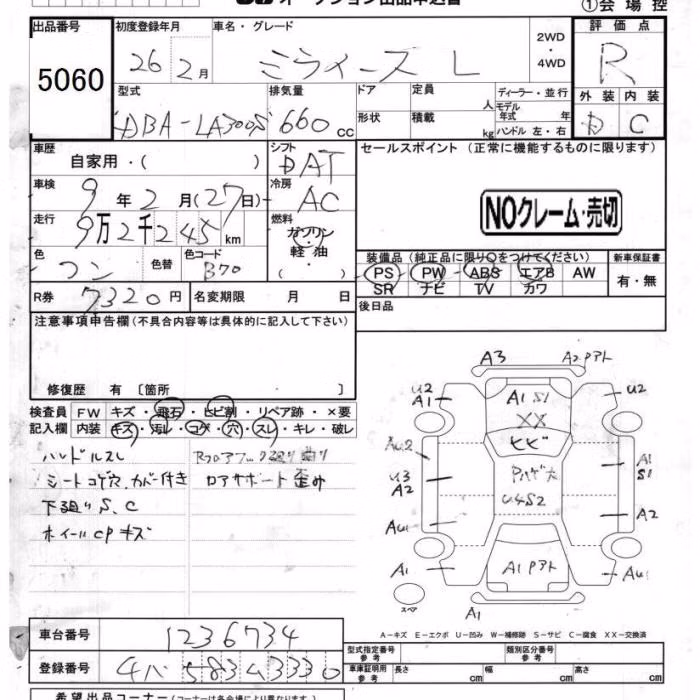 ①会場控
出品番号 初度登録年月 車名・グレード 評価点
5060
26 2月 ミライース L
2WD
・
4WD
R
型式 排気量 ドア 定員 ディーラー・並行 外装 内装
DBA-LA300S 660 cc
人 モデル年式 年
形状 積載 kg ハンドル 左・右
D C
車歴 シフト セールスポイント (正常に機能するものに限ります)
自家用・( ) DAT
車検 冷房
9年2月(27日) AC
NOクレーム・売切
走行 燃料
9万2千245km ガソリン・軽油
色 色替 色コード ( )
コン B70
装備品 (純正品に限り○をつけてください) 新車保証書
PS PW ABS エアB AW 有・無
SR ナビ TV カワ
R券 7320円 名変期限 月 日
後日品
注意事項申告欄 (不具合内容等は具体的に記入して下さい)
修復歴 有 [箇所 ]
検査員 FW キズ・飛石・ヒビ割・リペア跡・×要
記入欄 内装 キズ・汚レ・コゲ・穴・スレ・キレ・破レ
ハンドルスレ
シートコゲ穴、カバー付き ロアサポート歪み
下廻りS、C
ホイールCPキズ
A3 A2Pアト
U2 A1 A1 S1 U2
XX
ヒビ
U3 A2 Pハゲ大 A1 S1
U4S2 A2
A1 A1Pアト
スペア A1
A-キズ E-エクボ U-凹み W-補修跡 S-サビ C-腐食 XX-交換済
車台番号 1236734
型式指定番号 参考 類別区分番号 参考
登録番号
車庫証明用 参考 長さ cm 幅 cm 高さ cm
希望出品コーナー